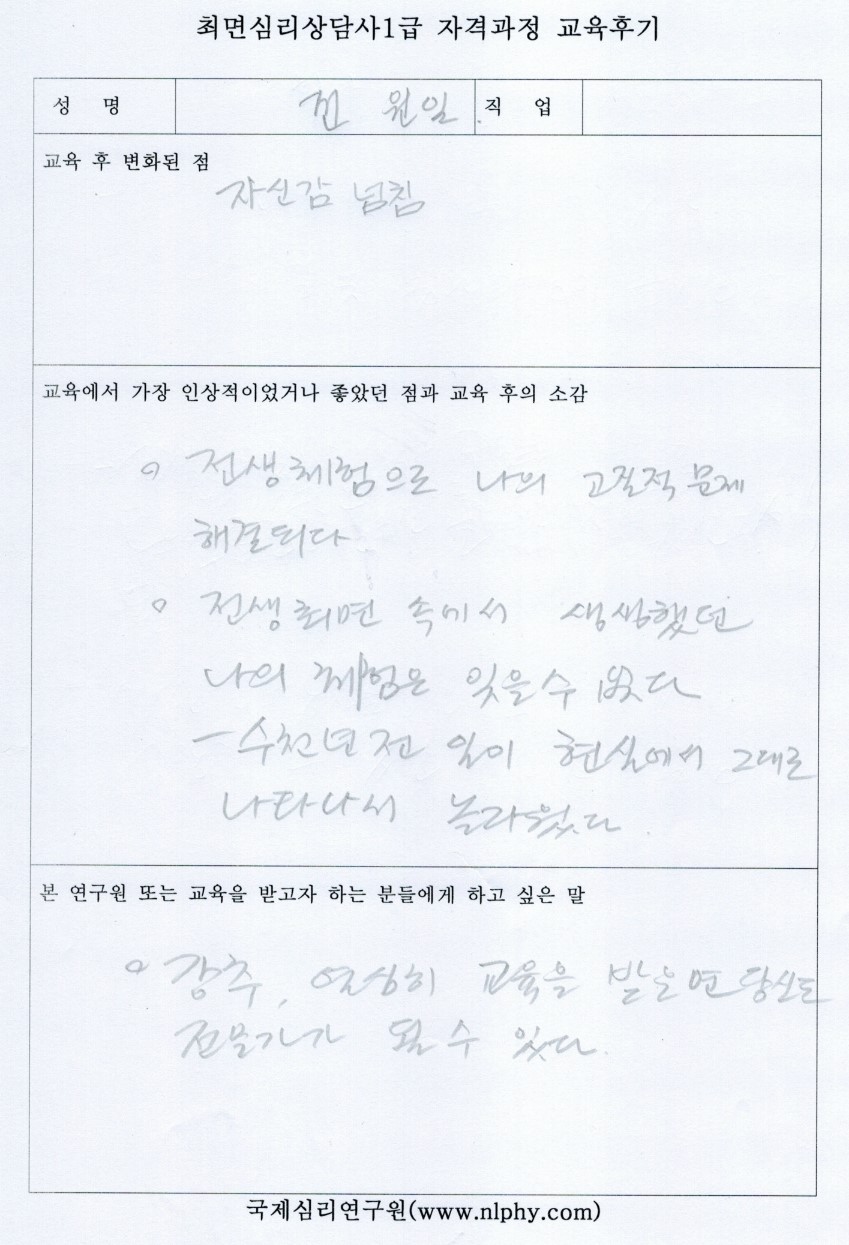 최면심리상담사1급 자격과정 교육후기
성 명 전 원일 직 업
교육 후 변화된 점
자신감 넘침
교육에서 가장 인상적이었거나 좋았던 점과 교육 후의 소감
○ 전생체험으로 나의 고질적 문제
해결되다
○ 전생최면 속에서 생생했던
나의 체험은 잊을수 없다
- 수천년전 일이 현실에서 그대로
나타나서 놀라웠다.
본 연구원 또는 교육을 받고자 하는 분들에게 하고 싶은 말
○ 강추, 열심히 교육을 받으면 당신도
전문가가 될 수 있다.
국제심리연구원(www.nlphy.com)